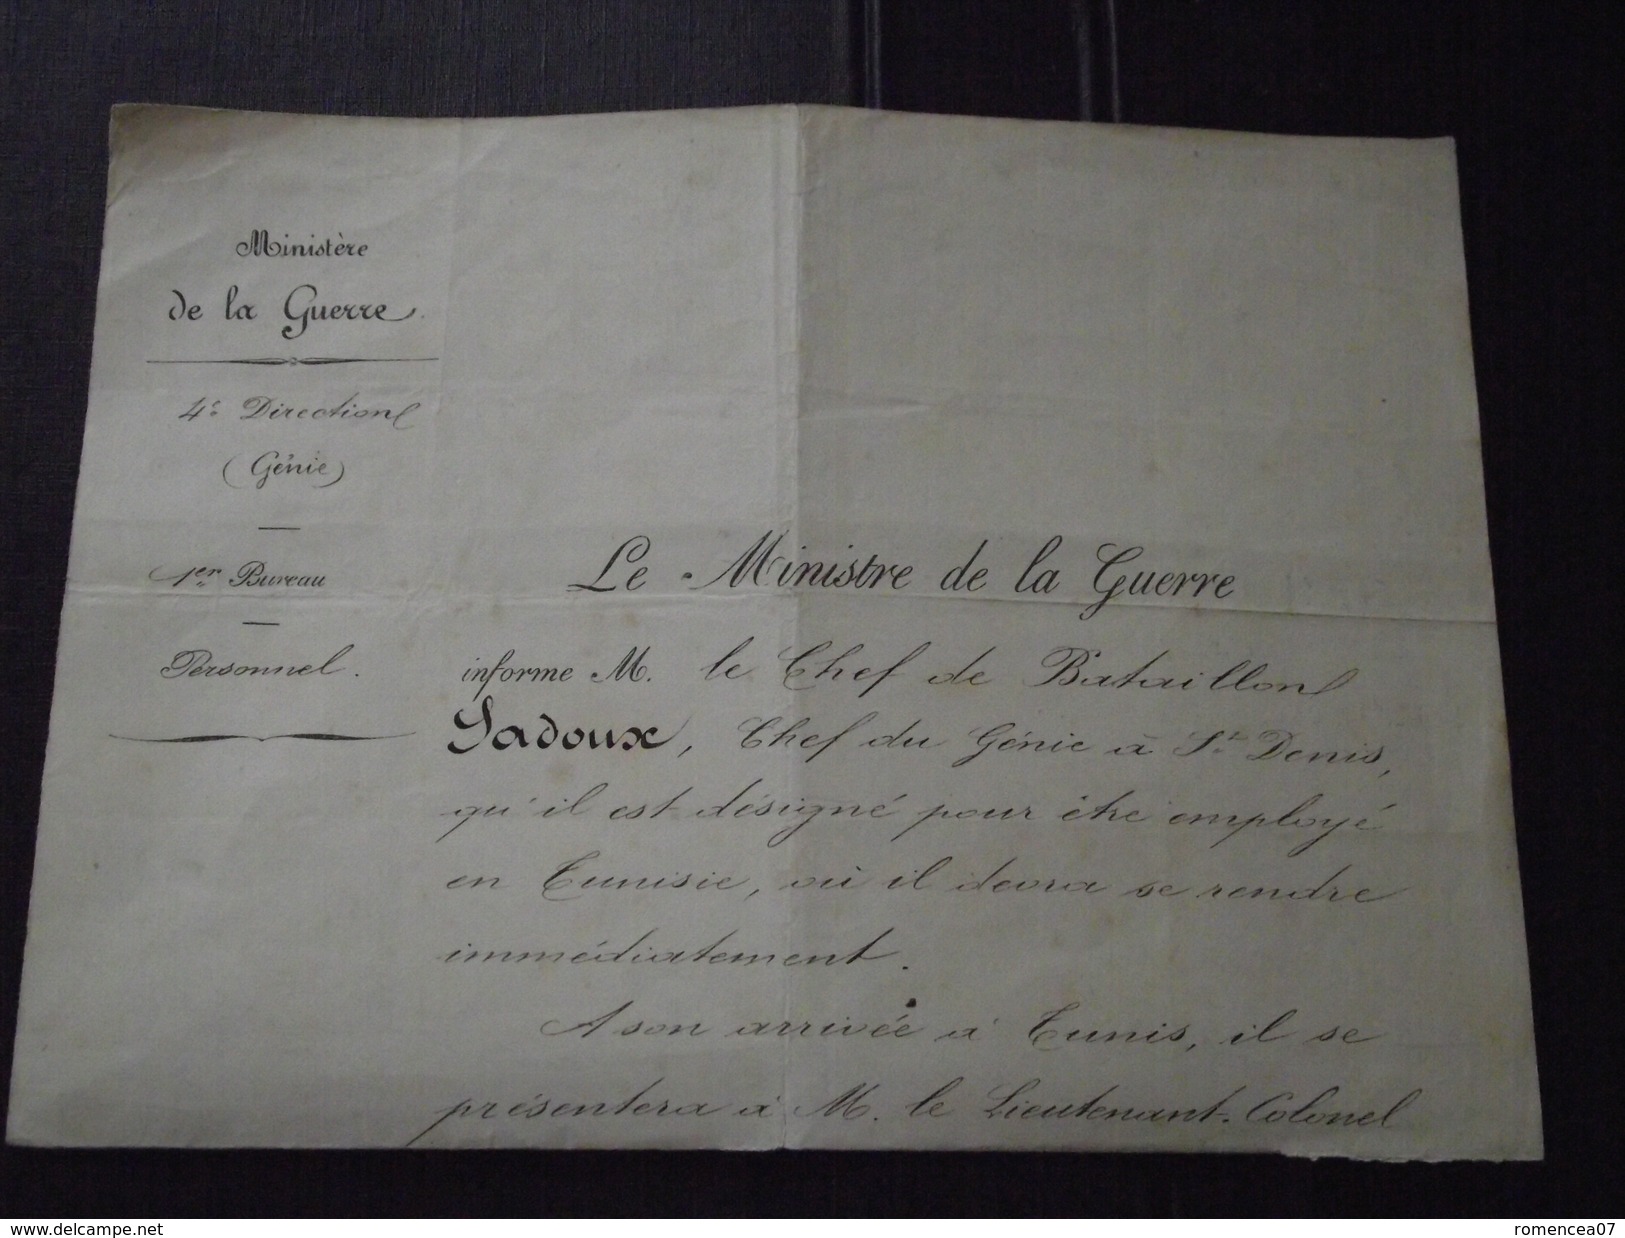 Ministère
de la Guerre.
4e Direction
(Génie)
1er Bureau
Personnel.
Le Ministre de la Guerre
informe M. le Chef de Bataillon
Sadoux, Chef du Génie à St Denis,
qu'il est désigné pour être employé
en Tunisie, où il devra se rendre
immédiatement.
A son arrivée à Tunis, il se
présentera à M. le Lieutenant-Colonel
www.delcampe.net
romencea07